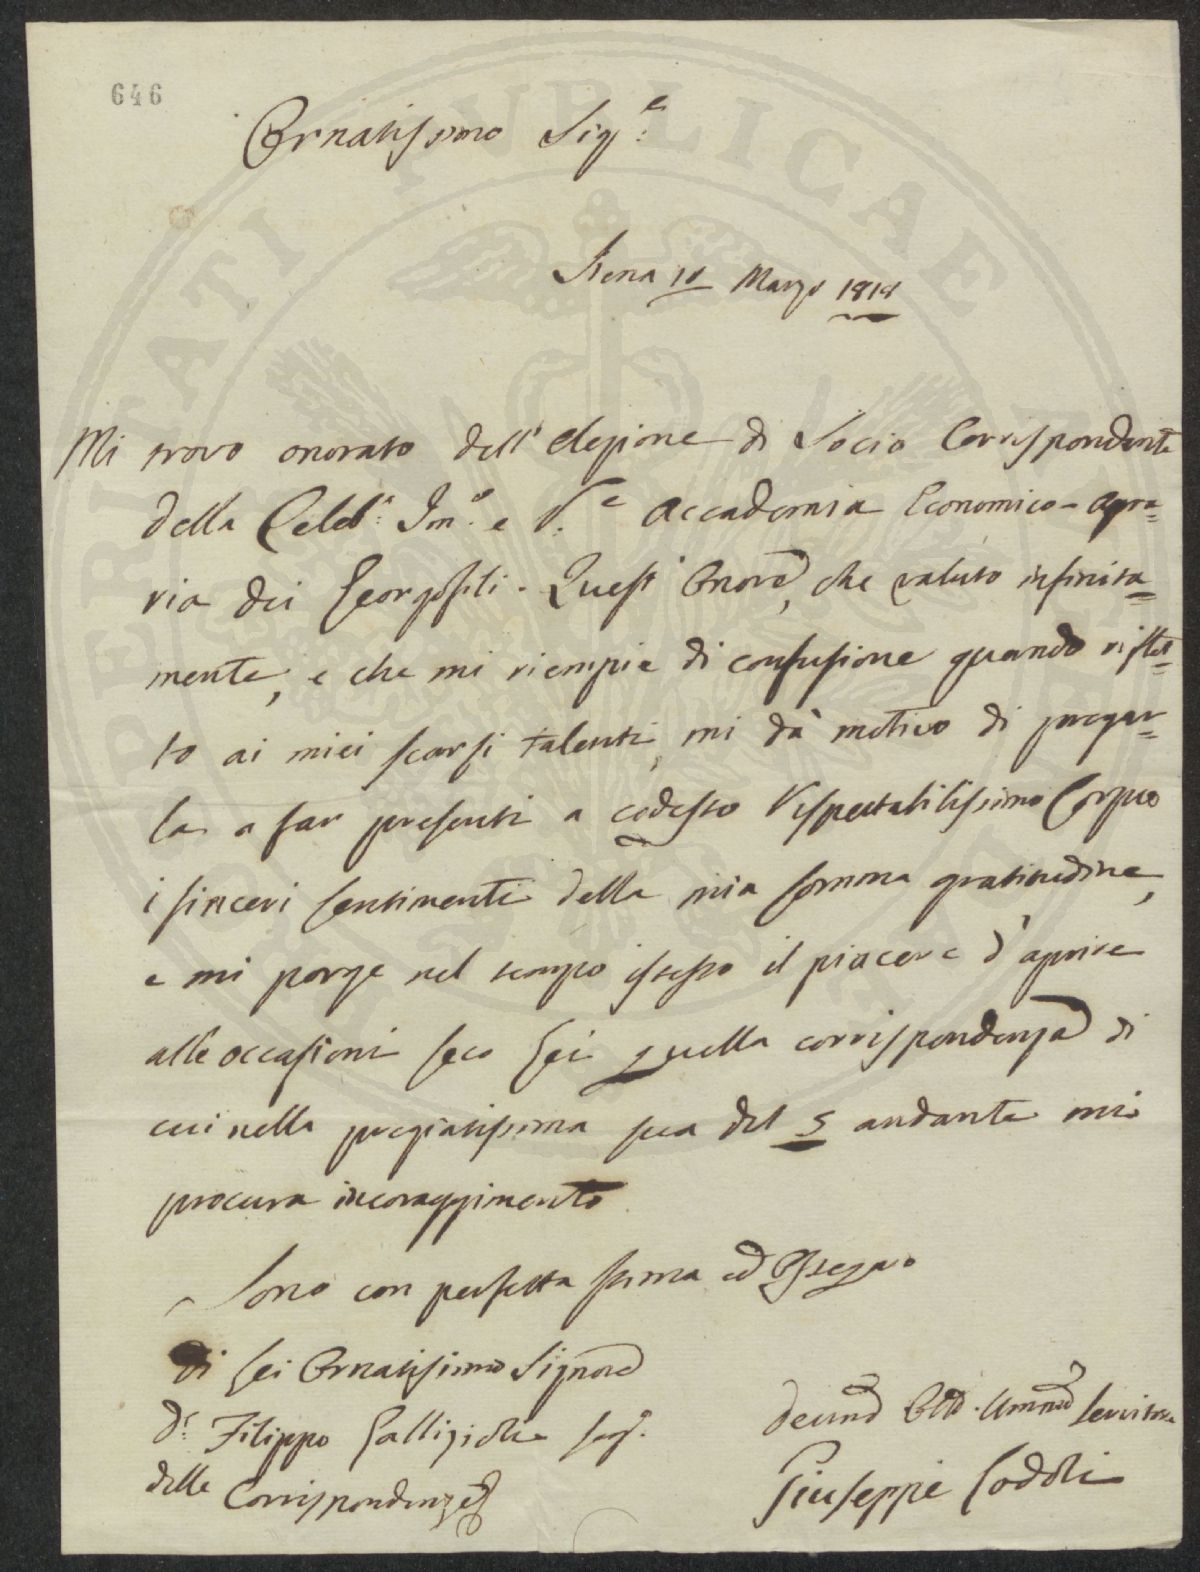 646
Ornatissimo Sig.e
Siena 10 Marzo 1818
Mi trovo onorato dell'elezione di Socio Corrispondente
della Celeb.e Im.e e R.e Accademia Economico-Agra=
ria dei Georgofili. Quest'Onore, che valuto infinita=
mente, e che mi riempie di confusione quando riflet=
to ai miei scarsi talenti, mi dà motivo di pregar=
la a far presenti a codesto Rispettabilissimo Corpo
i sinceri sentimenti della mia somma gratitudine,
e mi porge nel tempo istesso il piacere d'aprire
alle occasioni seco Lei quella corrispondenza di
cui nella pregiatissima sua del 5 andante mi
procura incoraggimento.
Sono con perfetta stima ed Ossequio
Di Lei Ornatissimo Signore
D.r Filippo Gallizioli Seg.o
delle Corrispondenze
Devmo Obbo. Ummo Servitore
Giuseppe